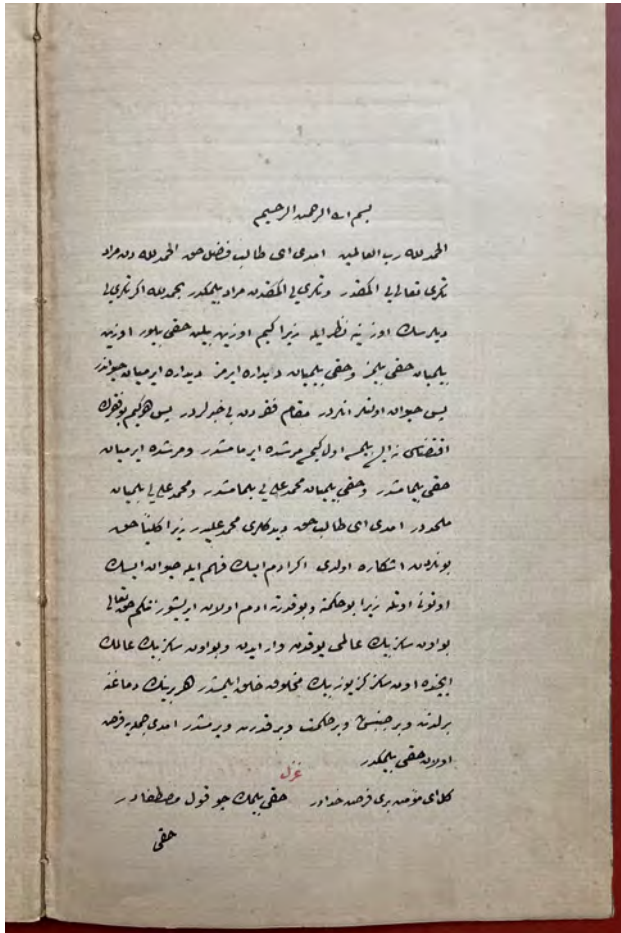 بسم الله الرحمن الرحيم
الحمد لله رب العالمين امدى اى طالب فضل حق الحمد لله دن مراد
تكرى تعالى يى اكمقدر وتكرى يى اكمقدن مراد بيلمكدر بحمد لله اكر تكرى يى
ديلرسك اوزينه نظر ايله زيرا كيم اوزين بيلن حقى بيلور اوزين
بيلميان حقى بيلمز وحقى بيلميان ديداره ايرمز ديداره ايرميان حيواندر
پس حيوان اولنلر انلردر مقام فقردن بى خبرلردر پس هركيم بو فقرك
اقتضاسى نه ايسه بيلمسه اول كيمسه مرشده ايرمامشدر ومرشده ايرميان
حقى بيلمامشدر وحقى بيلميان محمد على يى بيلمامشدر ومحمد على يى بيلميان
ملحددر امدى اى طالب حق ديدكلرى محمد عليدر زيرا كليتا حق
بونردن اشكاره اولدى اكر ادم ايسك فهم ايله حيوان ايسك
اوتونى اوتله زيرا بو حكمته وبو قدرته ادم اولان اريشور نتكم حق تعالى
بو اون سكز بيك عالمى يوقدن وار ايدن وبو اون سكز بيك عالمك
ايچنده اون سكز كز يوز بيك مخلوق خلق ايلمشدر هر برينك دماغنه
بر لذت وبر جنبش وبر حكمت وبر قدرت ويرمشدر امدى جمله يه فرض
اولان حقى بيلمكدر
غزل
كل اى مؤمن برى فرض خدادر حقى بيلمك چو قول مصطفادر
حقى